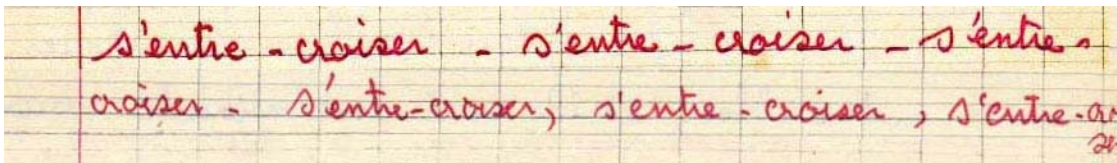 s'entre-croiser - s'entre-croiser - s'entre-
croiser - s'entre-croiser, s'entre-croiser, s'entre-croi
ser